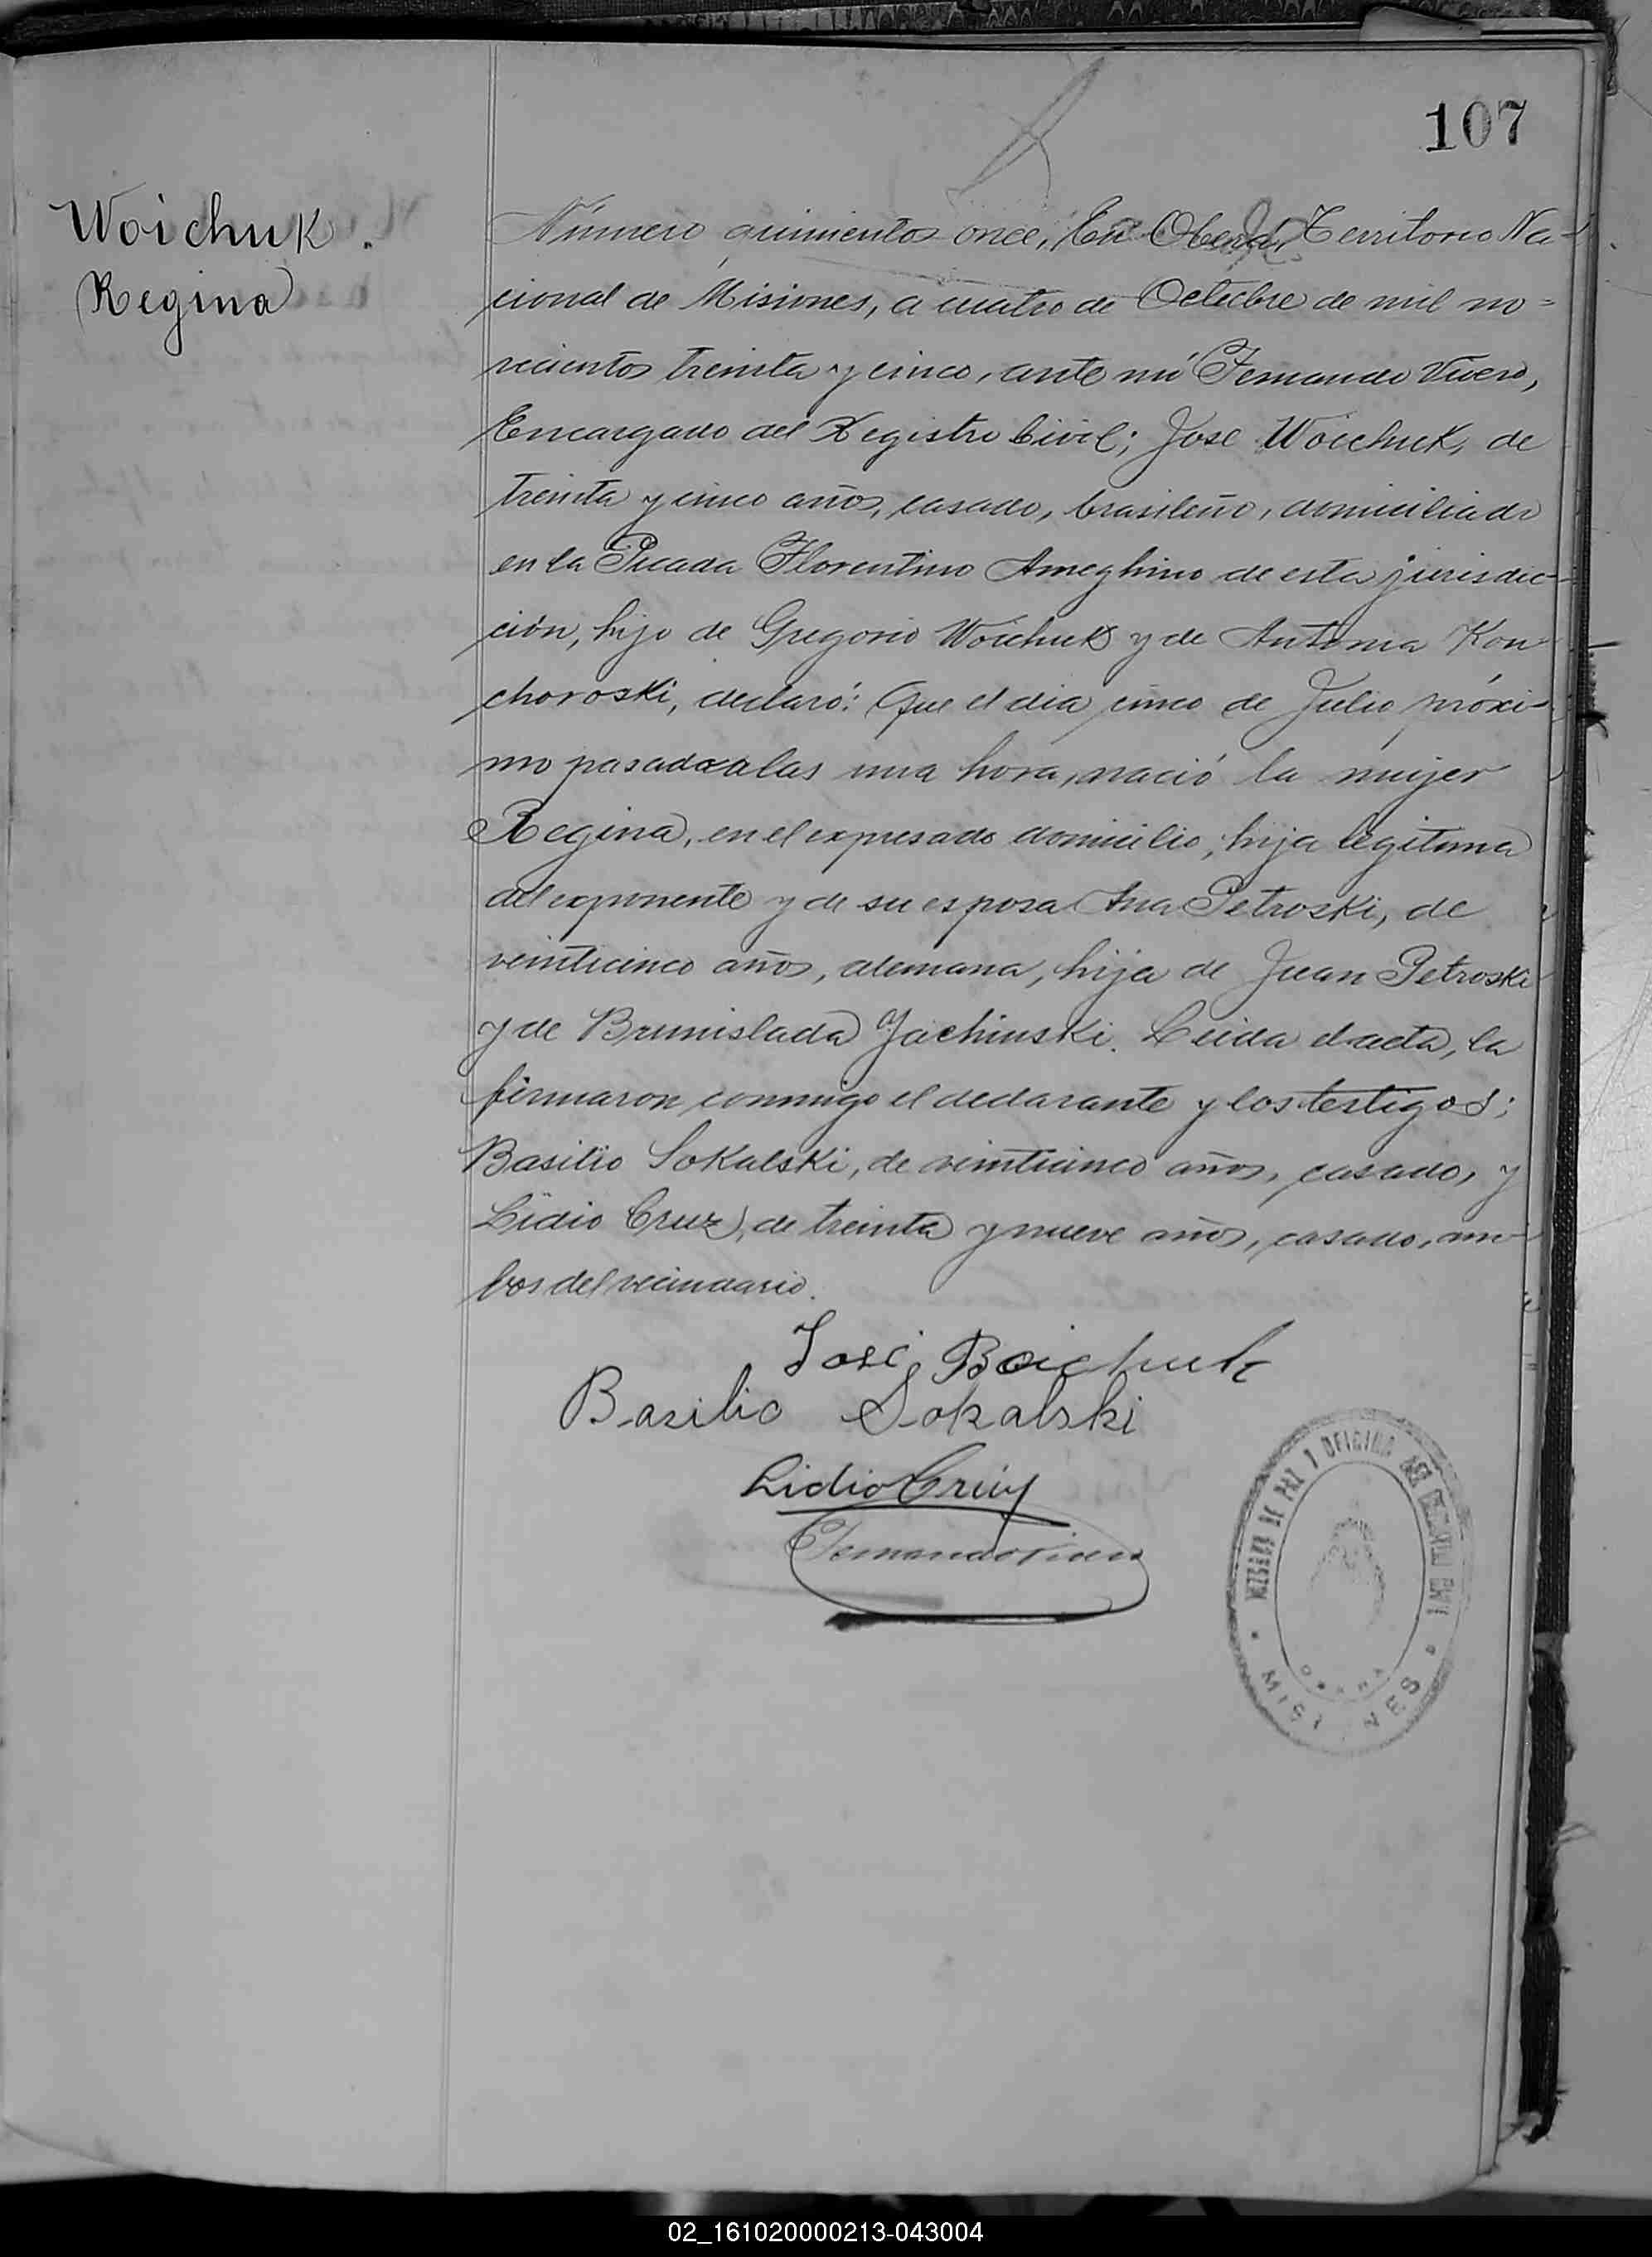 107
Woichuk.
Regina
Número quinientos once, En Oberá, Territorio Na-
cional de Misiones, a cuatro de Octubre de mil no=
vecientos treinta y cinco, ante mí Fernando Vivero,
Encargado del Registro Civil; José Woichuk, de
treinta y cinco años, casado, brasileño, domiciliado
en la Picada Florentino Ameghino de esta jurisdic-
ción, hijo de Gregorio Woichuk y de Antonia Kon-
choroski, declaró: Que el dia cinco de Julio próxi-
mo pasado a las una hora, nació la mujer
Regina, en el expresado domicilio, hija legítima
del exponente y de su esposa Ana Petroski, de
veinticinco años, alemana, hija de Juan Petroski
y de Brunislada Jachinski. Leida el acta, la
firmaron conmigo el declarante y los testigos;
Basilio Sokalski, de veinticinco años, casado, y
Lidio Cruz, de treinta y nueve años, casado, am-
bos del vecindario.
José Boichuk
Basilio Sokalski
Lidio Cruz
Fernando
JUZGADO DE PAZ Y OFICINA DEL REGISTRO CIVIL
OBERA
MISIONES
02_161020000213-043004